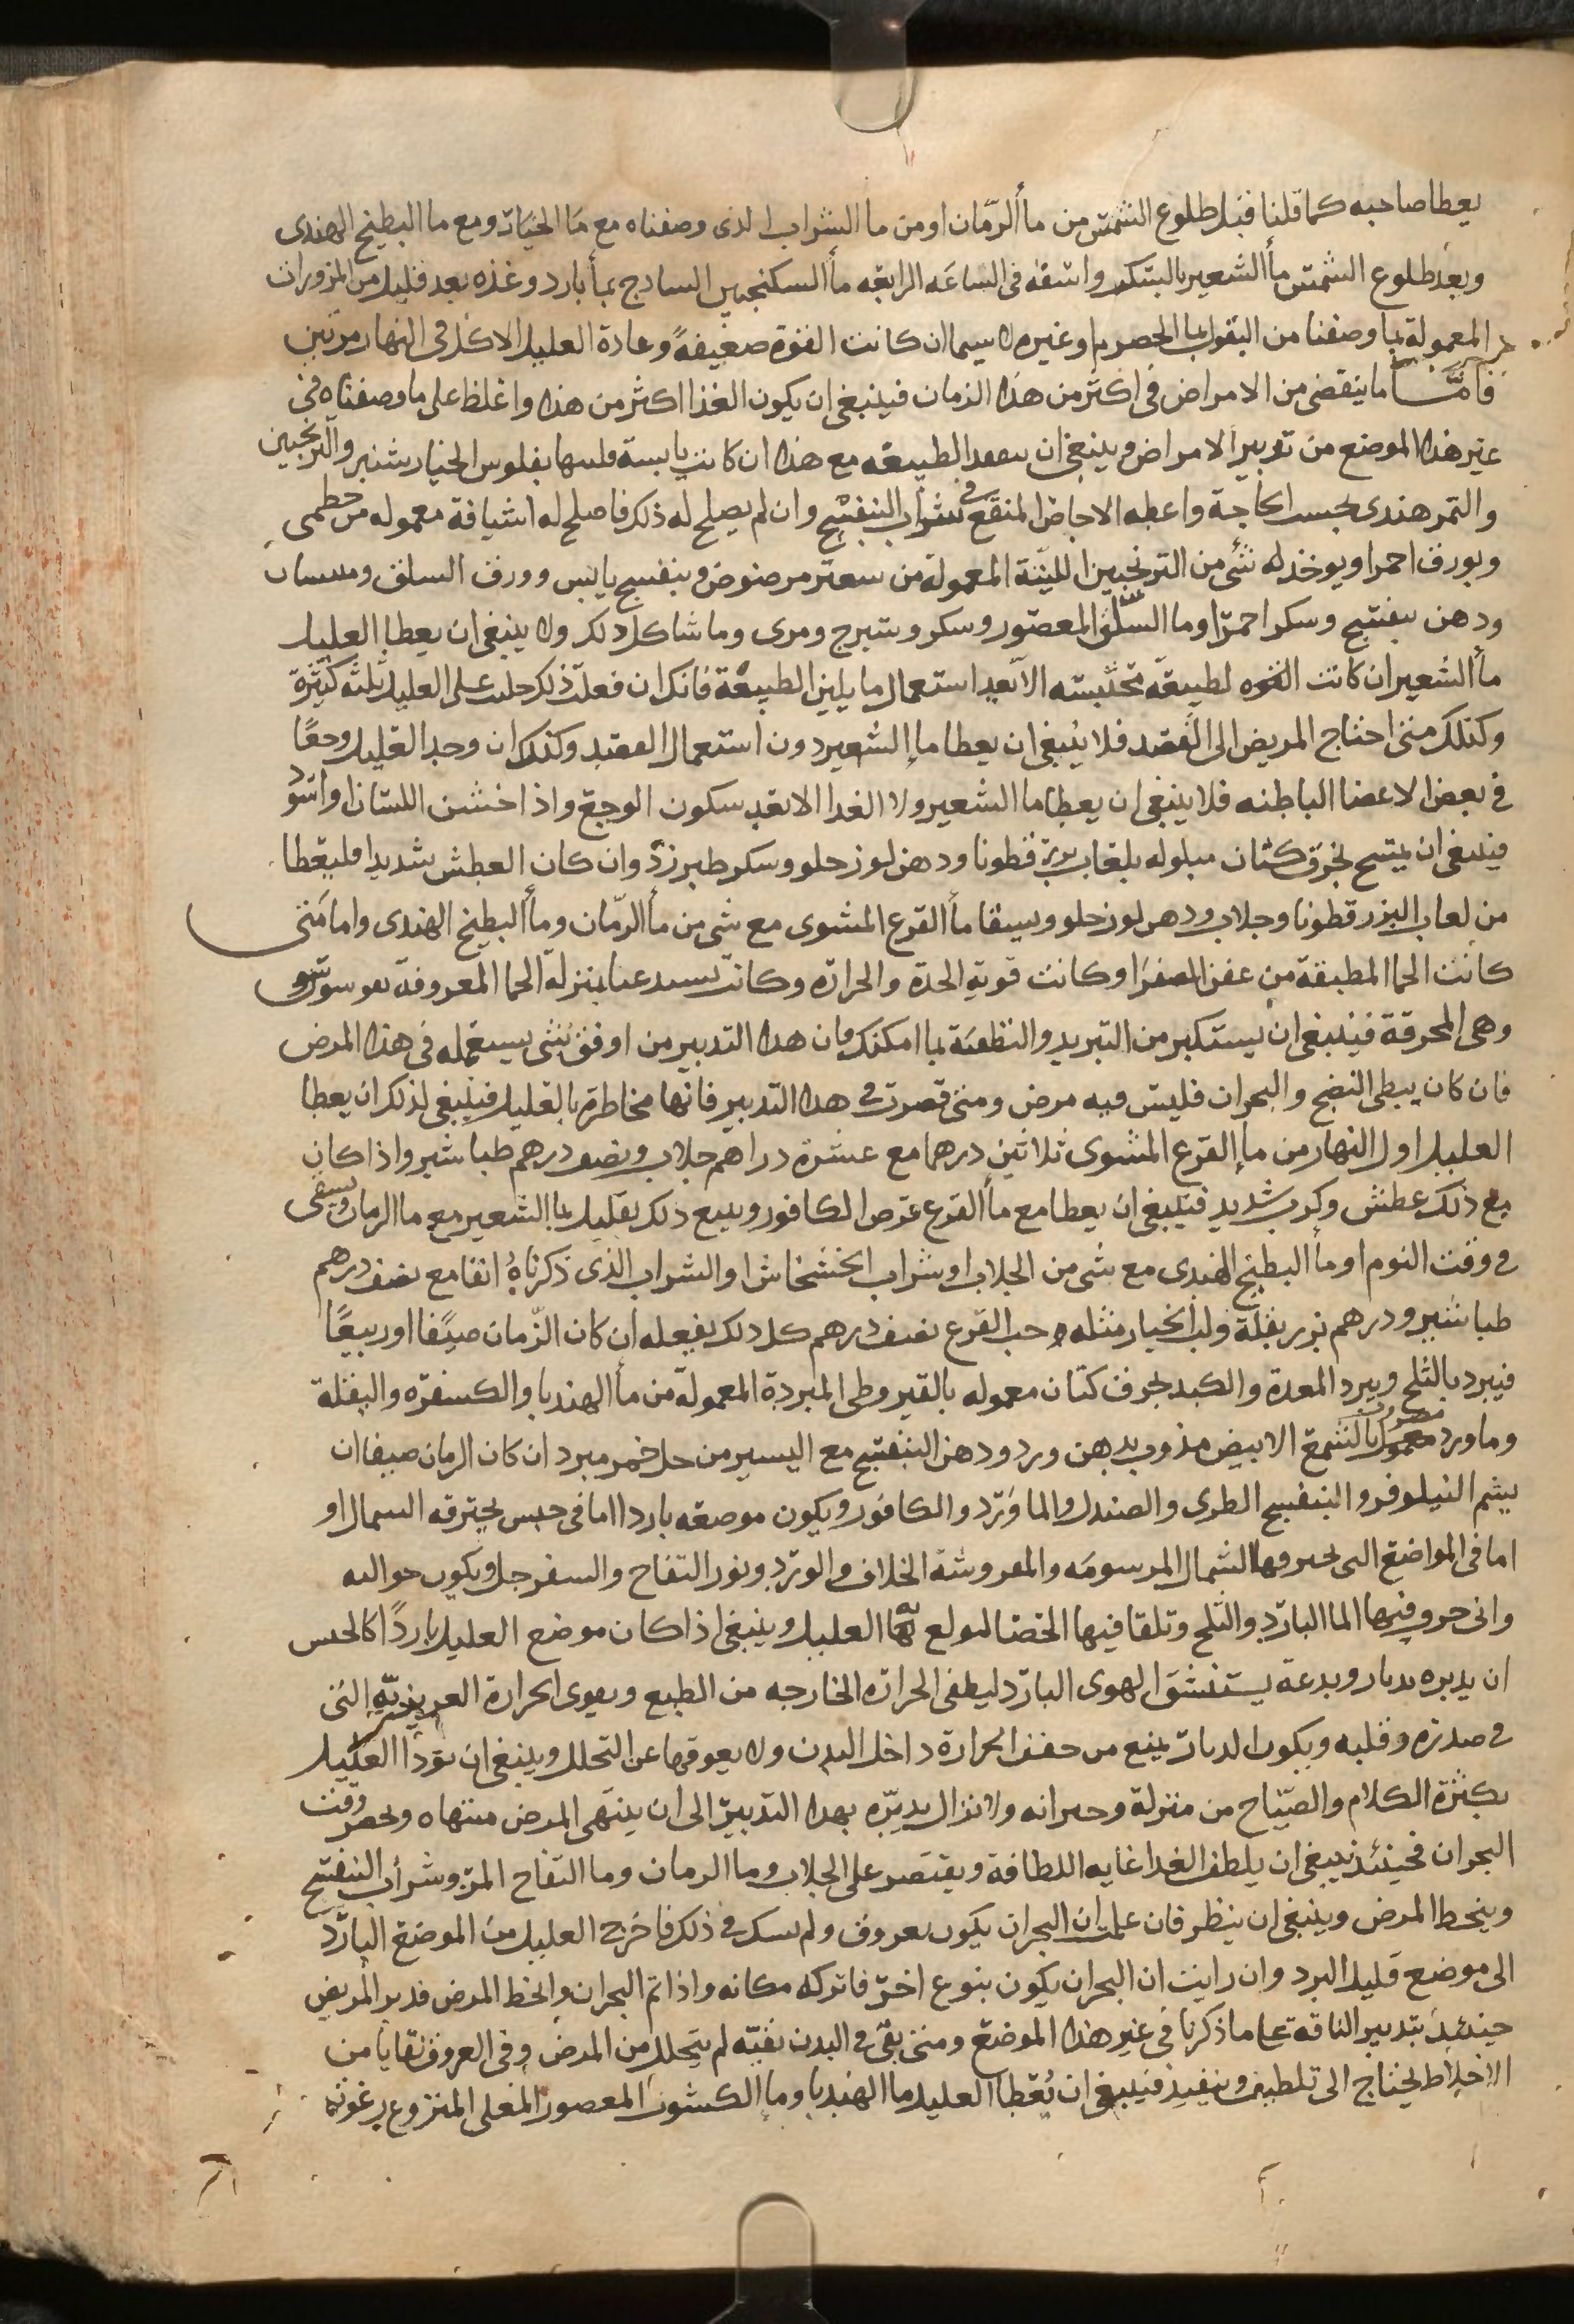 يعطا صاحبه كما قلنا قبل طلوع الشمس من ماء الرمان او من ما الشراب الذى وصفناه مع ما الخيار ومع ما البطيخ الهندى
وبعد طلوع الشمس ماء الشعير بالسكر واسقه فى الساعه الرابعه ماء السكنجبين السادج بماء بارد وغذه بعد قليل من المزورات
المعمولة بما وصفنا من البقول بما الحصرم او غيره لا سيما ان كانت القوة ضعيفة وعادة العليل الاكل فى النهار مرتين
فامّا ما ينقضى من الامراض فى اكثر من هذا الزمان فينبغى ان يكون الغذا اكثر من هذا واغلظ على ما وصفناه فى
غير هذا الموضع من تدبير الامراض وينبغى ان تتفقد الطبيعه مع هذا ان كانت يابسة فلينها بفلوس الخيار شنبر والترنجبين
والتمر هندى بحسب الحاجة واعطه الاجاص المنقع فى شراب البنفسج وان لم يصلح له ذلك فاصلح له اشيافة معموله من خطمى
وبورق احمر او يوخذ له شى من الترنجبين اللينة المعمولة من شعير مرضوض وبنفسج يابس وورق السلق
ودهن بنفسج وسكر احمر او ما السلق المعصور وسكر وشيرج ومرى وما شاكل ذلك ولا ينبغى ان يعطا العليل
ماء الشعير ان كانت الطبيعة محتبسه الا بعد استعمال ما يلين الطبيعة فانك ان فعلت ذلك جلبت على العليل بلية كبيرة
وكذلك متى احتاج المريض الى الفصد فلا ينبغى ان يعطا ماء الشعير دون استعمال الفصد وكذلك ان وجد العليل وجعًا
فى بعض الاعضا الباطنه فلا ينبغى ان يعطا ما الشعير ولا الغدا الا بعد سكون الوجع واذا خشن اللسان او اسود
فينبغى ان يمسح بخرق كتان مبلوله بلعاب بزر قطونا ودهن لوز حلو وسكر طبرزد وان كان العطش شديدا فليعطا
من لعاب البزر قطونا وجلاب ودهن لوز حلو ويسقا ماء القرع المشوى مع شى من ماء الرمان وماء البطيخ الهندى واما متى
كانت الحما المطبقة من عفن الصفرا وكانت قوية الحدة والحرارة وكانت تشتد غبا بمنزلة الحما المعروفة بقوسوس
وهى المحرقة فينبغى ان يستكثر من التبريد والتطفئة بما امكنك فان هذا التدبير من اوفق شى يستعمله فى هذا المرض
فان كان يبطى النضج والبحران فليس فيه مرض ومتى قصرت فى هذا التدبير فانها مخاطرة بالعليل فينبغى لذلك ان يعطا
العليل اول النهار من ماء القرع المشوى ثلاثين درهما مع عشرة دراهم جلاب ونصف درهم طباشير واذا كان
مع ذلك عطش وكرب شديد فينبغى ان يعطا مع ماء القرع قرص الكافور ويتبع ذلك بقليل ما الشعير مع ما الرمان ويسقى
فى وقت النوم او ماء البطيخ الهندى مع شى من الجلاب او شراب الخشخاش او الشراب الذى ذكرناه انفا مع نصف درهم
طباشير ودرهم بزر بقلة ولب الخيار مثله وحب القرع نصف درهم كل ذلك يفعله ان كان الزمان صيفًا او ربيعًا
فيبرد بالثلج ويبرد المعدة والكبد بخرق كتان معموله بالقيروطى المبردة المعمولة من ماء الهندبا والكسفرة والبقلة
وماورد مضروب بالشمع الابيض مذوب بدهن ورد ودهن البنفسج مع اليسير من خل خمر مبرد ان كان الزمان صيفا ان
يشم النيلوفر والبنفسج الطرى والصندل والماورد والكافور ويكون موضعه باردا اما فى خيس يخترقه الشمال او
اما فى المواضع التى الشمال المرسومه والمفروشة الخلاف والورد ونور التفاح والسفرجل ويكون حواليه
وانى جر وفيها الما البارد والثلج وتلقا فيها الخضا المولع بها العليل وينبغى اذا كان موضع العليل باردًا كالخيس
ان يدبره بدثار ويدعه يستنشق الهوى البارد ليطفى الحرارة الخارجه من الطبع ويقوى الحرارة الغريزية التى
فى صدره وقلبه ويكون الدثار يمنع من حقن الحرارة داخل البدن ولا يعوقها عن التحلل وينبغى ان لا يودا العليل
بكثرة الكلام والصياح من منزلة وجيرانه ولا تزال تدبره بهذا التدبير الى ان ينتهى المرض منتهاه ويحضر وقت
البحران فحينئذ ينبغى ان يلطف الغدا غايه اللطافة ويقتصر على الجلاب وما الرمان وما التفاح المز وشراب البنفسج
وينحط المرض وينبغى ان ينظر فان علمت ان البحران يكون بعروق ولم تشك فى ذلك فاخرج العليل من الموضع البارد
الى موضع قليل البرد وان رايت ان البحران يكون بنوع اخر فاتركه مكانه واذا تم البحران وانحط المرض فدبر المريض
حينئذ بتدبير الناقة على ما ذكرنا فى غير هذا الموضع ومتى بقى فى البدن بقيه لم تتحلل من المرض وفى العروق بقايا من
الاخلاط يحتاج الى تلطيف وتنفيذ فينبغى ان يُعطا العليل ما الهندبا وما الكشوت المعصور المغلى المنزوع برغوته